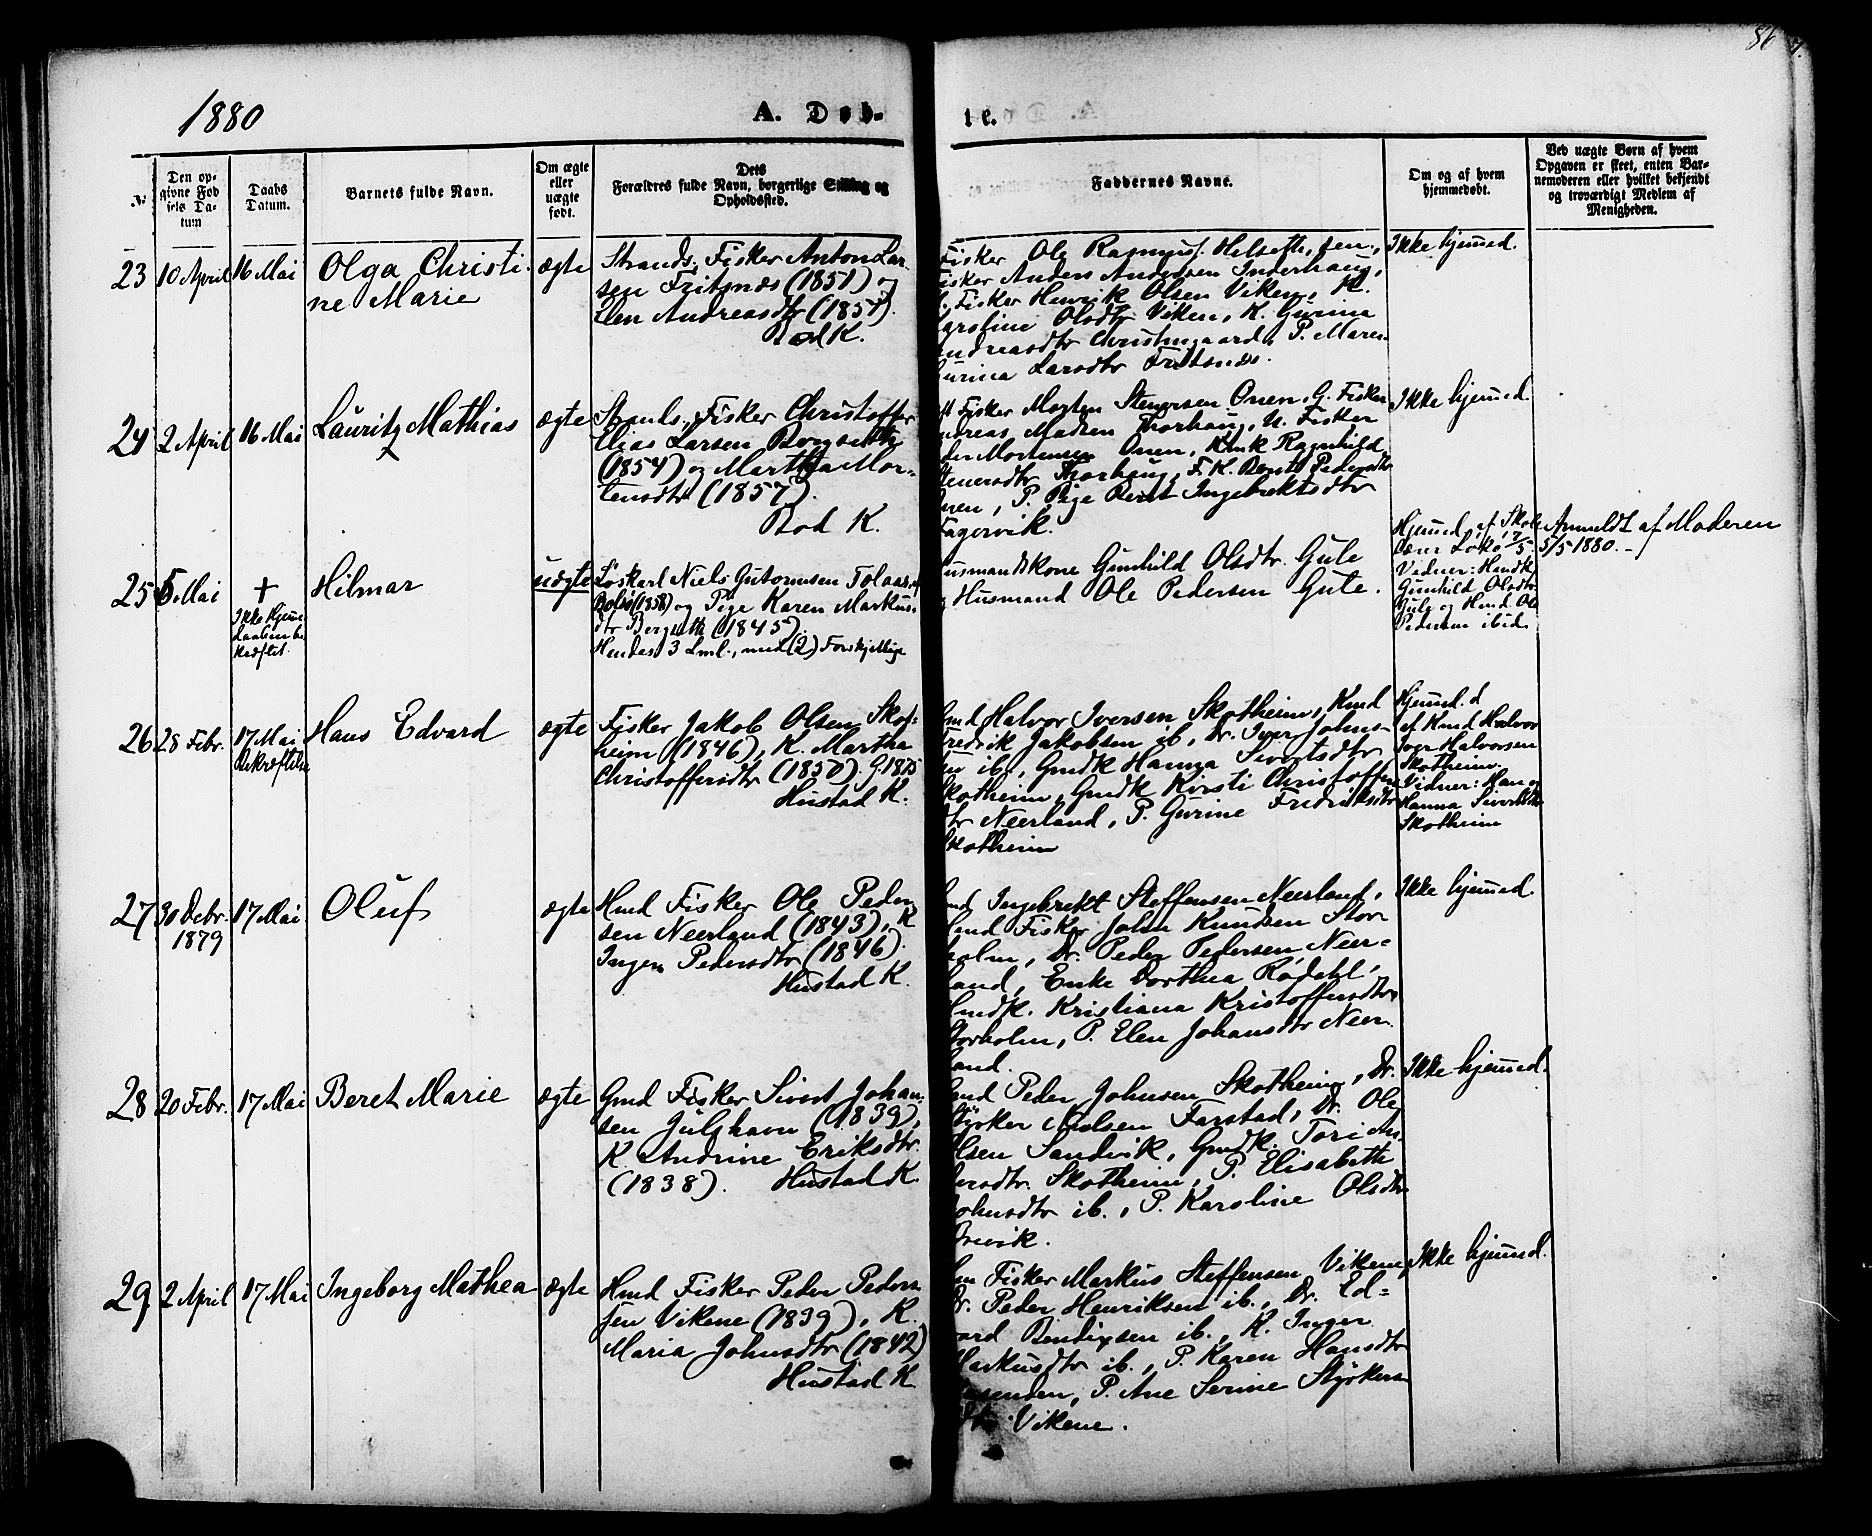 1880
A. Døb-
te.
№
Den op-
givne Fød
sels Da-
tum
Daabs
Datum.
Barnets fulde Navn.
Om ægte
eller
uægte
født.
Dets
Forældres fulde Navn, borgerlige Stilling og
Opholdssted.
Faddernes Navne.
Om og af hvem
hjemmedøbt.
Ved uægte Børn af hvem
Opgaven er skeet, enten Bar-
nemoderen eller hvilket bekjendt
og troværdigt Medlem af
Menigheden.
23
10 April
16 Mai
Olga Christi-
ne Marie
ægte
Strands. Fisker Anton Lar-
sen Fritsnes (1851) og
Elen Andreasdtr (1851).
Bod K.
Fisker Ole Rasmus. Helseth, sen.,
isker Anders Andersen Inderhaug,
Fisker Henrik Olsen Viken, K.
aroline Olsdtr Viken, K. Gurina
ndreasdtr Christengaard, P. Maren
urina Larsdtr Fritsnes.
Ikke hjemmed.
24
2 April
16 Mai
Lauritz Mathias
ægte
Strands. Fisker Christoffer
Elias Larsen Bergseth
(1854) og Martha Mor-
tensdtr (1857).
Bod K.
Fisker Morten Stenersen Onen, G. Fisker
ndreas Madsen Thorhaug, U. Fisker
der Mortensen Onen, Enk Ragnhild
tenersdtr Thorhaug, F. K. Berit Pedersdtr
nen, P. Pige Beret Ingebrektsdtr
Fagervik.
Ikke hjemmed.
25
5 Mai
+
Ikke Hjemme
daaben be-
kræftet.
Hilmar
uægte
Løskarl Niels Gutormsen Tolaas, af
Bolsø (1858) og Pige Karen Markus-
dtr Bergseth (1845)
Hendes 3 Lml., med (2) Forskjellige
usmandskone Gunhild Olsdtr. Gule
g Husmand Ole Pedersen Gule.
Hjemmed. af Skole
lærer Løkø 7/5.
Vidner: Hmdk
Gunhild Olsdtr
Gule og Hmd Ole
Pedersen ibid.
Anmeldt af Moderen
5/5 1880.
26
28 Febr.
17 Mai
Bekræftelse
Hans Edvard
ægte
Fisker Jakob Olsen Skot-
heim (1846), K. Martha
Christoffersdtr (1850). G. 1875
Hustad K.
md Halvor Iversen Skotheim, Kmd
Fredrik Jakobsen ib, Dr. Iver Johns-
en ib., Gmdk Hanna Sivertsdtr
Skotheim, Gmdk Kirsti Christoffers-
dtr Neerland, P. Gurine Fredriksdtr
Skotheim
Hjemmed.
af Kmd Halvor
Iver Halvorsen
Skotheim.
Vidner: Han og
Hanna Sivertsdtr
Skotheim
27
30 Debr.
1879
17 Mai
Oluf
ægte
Hmd Fisker Ole Peder-
sen Neerland (1843), K
Ingen Pedersdtr (1846).
Hustad K.
md Ingebrekt Steffensen Neerland,
Hmd Fisker John Knudsen Stor-
holm, Dr. Peder Pedersen Neer-
land, Enke Dorthea Rødahl,
Hmdk. Kristiana Kristoffersdtr
Storholm, P. Elen Johansdtr Neer-
land.
Ikke hjemmed.
28
20 Febr.
17 Mai
Beret Marie
ægte
Gmd Fisker Sivert Johan-
sen Julshavn (1839),
K Andrine Eriksdtr.
(1838). Hustad K.
md Peder Johnsen Skotheim, Dr.
Styrker Nielsen Farstad, Dr. Ole
lsen Sandvik, Gmdk. Tori An-
dersdtr. Skotheim, P. Elisabeth
Johnsdtr ib., P. Karoline Olsdtr
revik.
Ikke hjemmed.
29
2 April
17 Mai
Ingeborg Mathea
ægte
Hmd Fisker Peder Peder-
sen Vikene (1839), K.
Maria Johnsdtr (1842)
Hustad K
Fisker Markus Steffensen Vikene,
Dr. Peder Henriksen ib., Dr. Ed-
vard Bendixsen ib., K. Inger
Markusdtr ib., P. Karen Hansdtr
P. Ane Serine Styrkers-
dtr Vikene.
Ikke hjemmed.